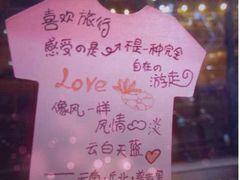 喜欢旅行
感受的是→不是一种完全
自在の
游走
Love
像风一样
风情∞淡
云白天蓝